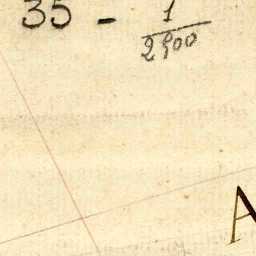 35 - 1/2500
A